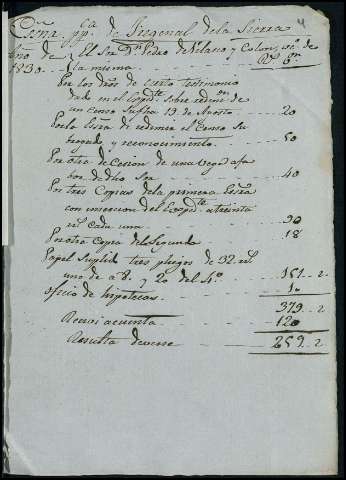 Esna. ppca de Fregenal de la Sierra
Año de 1830. El Sor Dn Pedro de Velasco y Colon, vecº de
la misma
Por los dros de cierto testimonio
dado en el Expdte sobre redencn de
un censo su fha 19 de Agosto 20
Por la Essra de redimir el Censo Su
brogado y reconocimiento 50
Por otra de Cesion de una Vega a fa
bor de dho Sor 40
Por tres Copias de la primera Essra
con insercion del Expdte a treinta
rs cada una 90
Por otra Copia del Segundo 18
Papel Suplido tres pliegos de 32 rs
uno de a 8. y 20 del 4º 151 .. 2
oficio de hipotecas 10
379 .. 2
Recivi a cuenta 120
Resulta deverse 259 .. 2